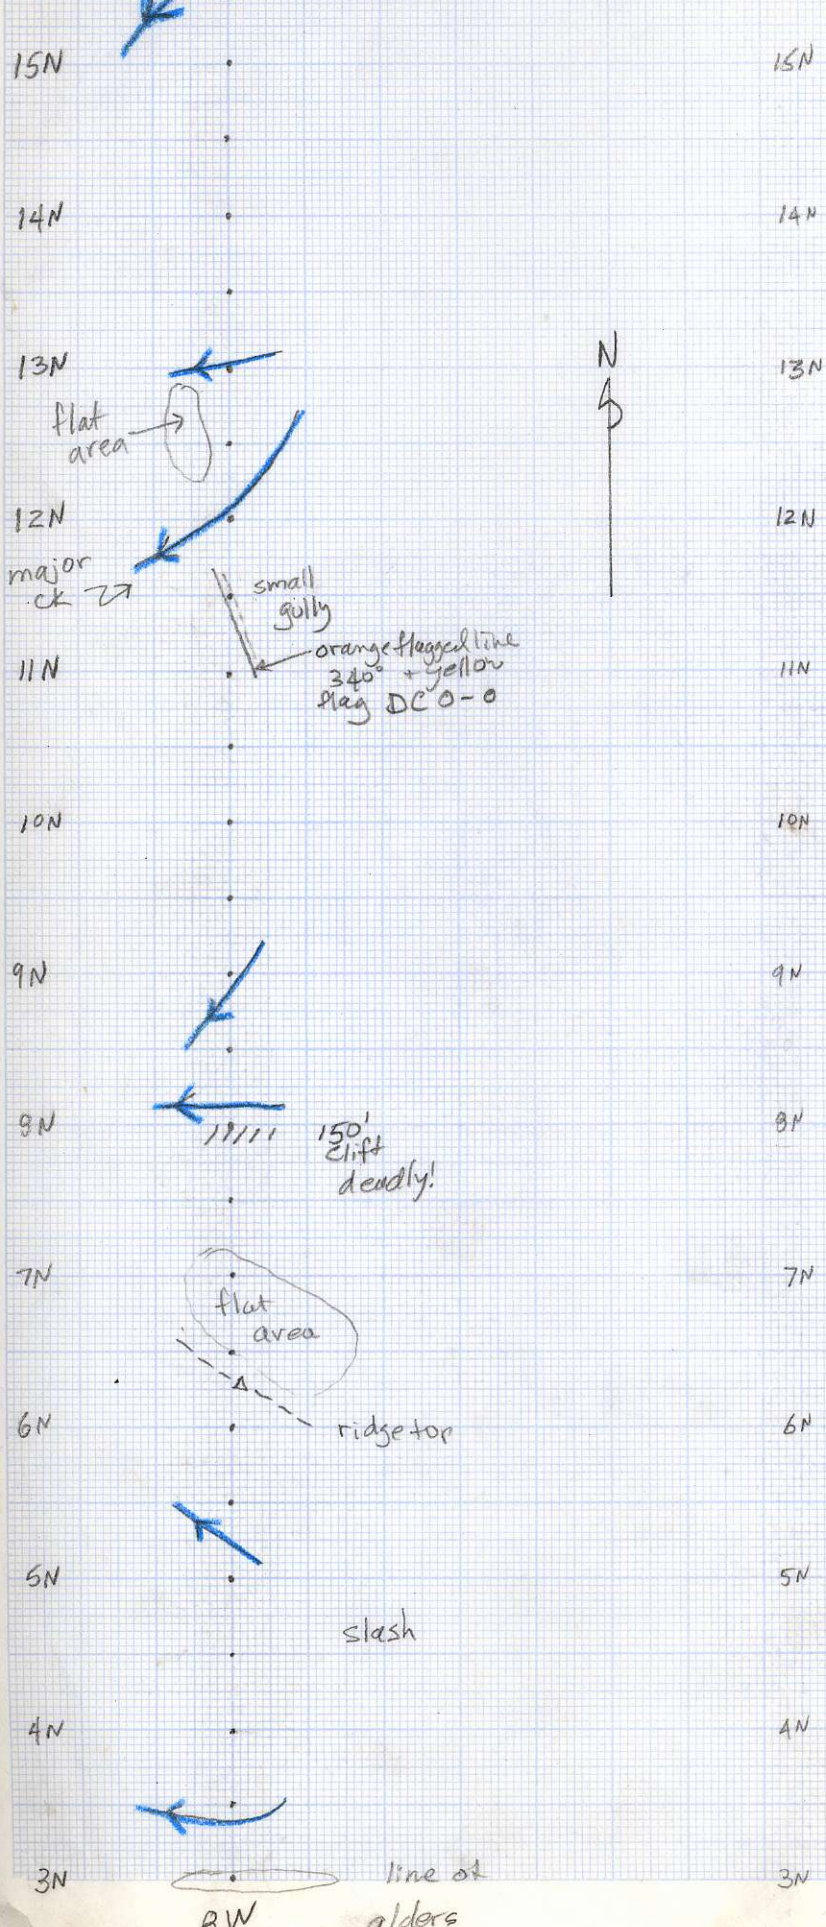 15N 15N
14N 14N
N
13N 13N
flat
area
12N 12N
major
ck
small
gully
orange flagged line
11N 340° + yellow 11N
flag DC 0-0
10N 10N
9N 9N
8N 150' 8N
Clift
deadly!
7N 7N
flat
area
6N ridgetop 6N
5N 5N
slash
4N 4N
3N line of 3N
8W alders